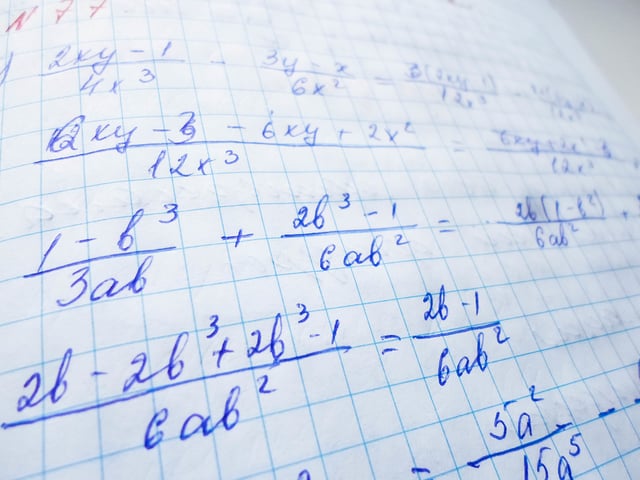 N 77
) (2xy - 1)/(4x³) - (3y - x)/(6x²) = 3(2xy-1)/(12x³)
(6xy - 3 - 6xy + 2x²)/(12x³) =
(1 - b³)/(3ab) + (2b³ - 1)/(6ab²) = 2b(1-b²)/(6ab²) +
(2b - 2b³ + 2b³ - 1)/(6ab²) = (2b - 1)/(6ab²)
= 5a²/(15a⁵)